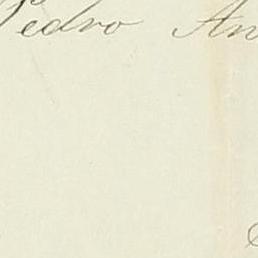 Pedro An